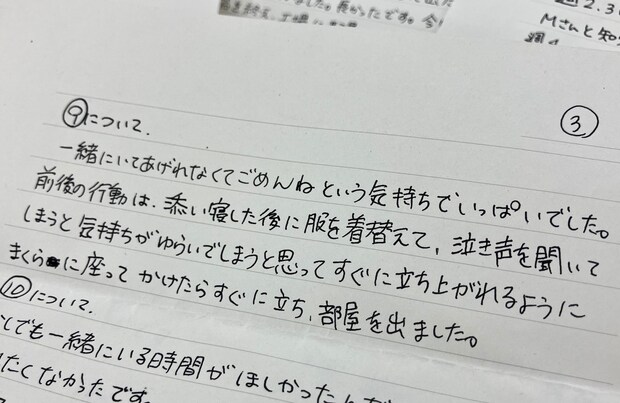 した。長かったです。今
M さんと知
③
⑨について.
一緒にいてあげれなくてごめんねという気持ちでいっぱいでした。
前後の行動は、添い寝した後に服を着替えて、泣き声を聞いて
しまうと気持ちがゆらいでしまうと思ってすぐに立ち上がれるように
まくらに座ってかけたらすぐに立ち、部屋を出ました。
⑩について.
でも一緒にいる時間がほしかったんだ
たくなかったです。